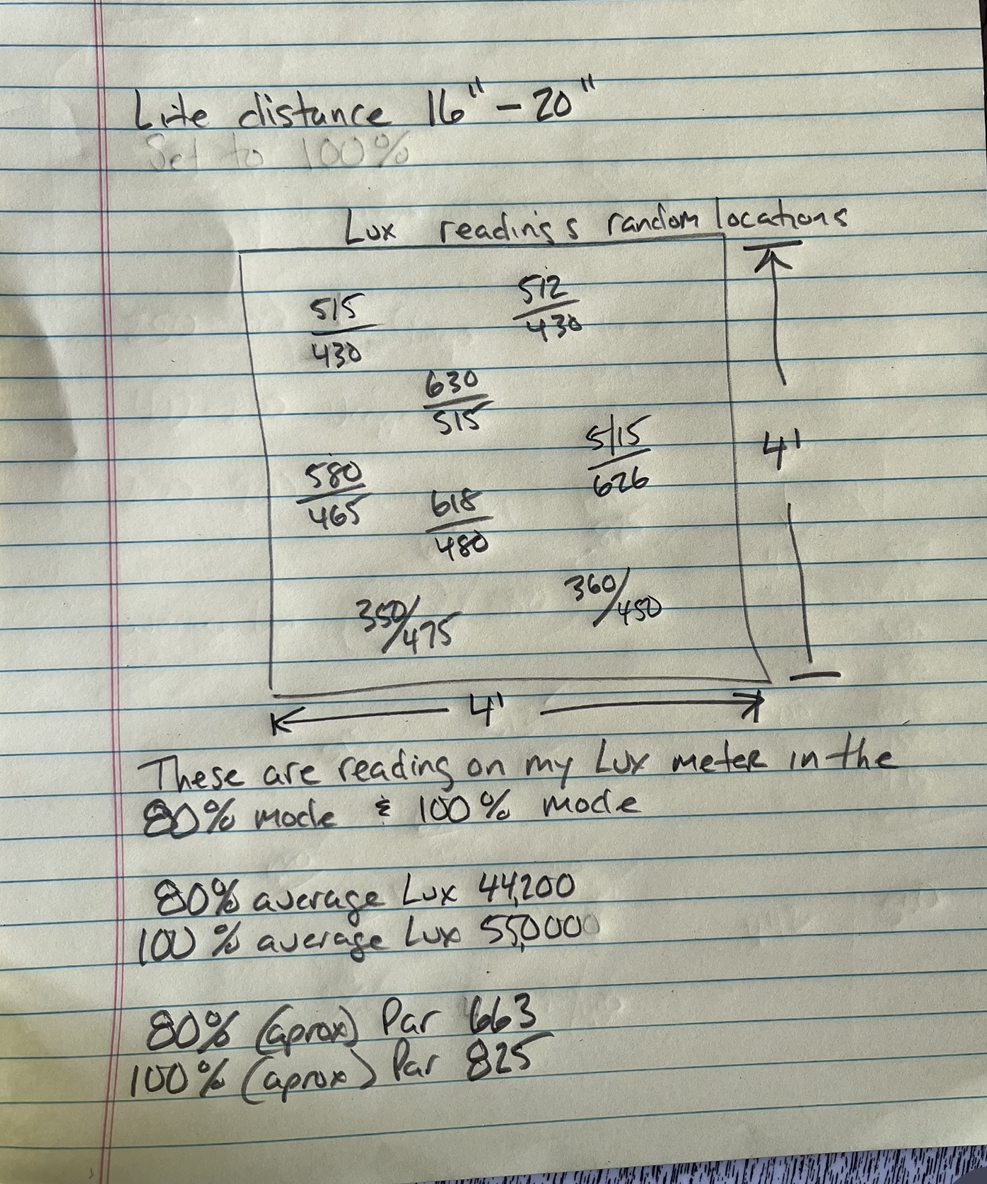 Lite distance 16" - 20"
Set to 100%
Lux reading's random locations
515/430
512/430
630/515
515/626
580/465
618/480
350/475
360/450
4'
4'
These are reading on my Lux meter in the
80% mode & 100% mode
80% average Lux 44,200
100% average Lux 55,000
80% (aprox) Par 663
100% (aprox) Par 825